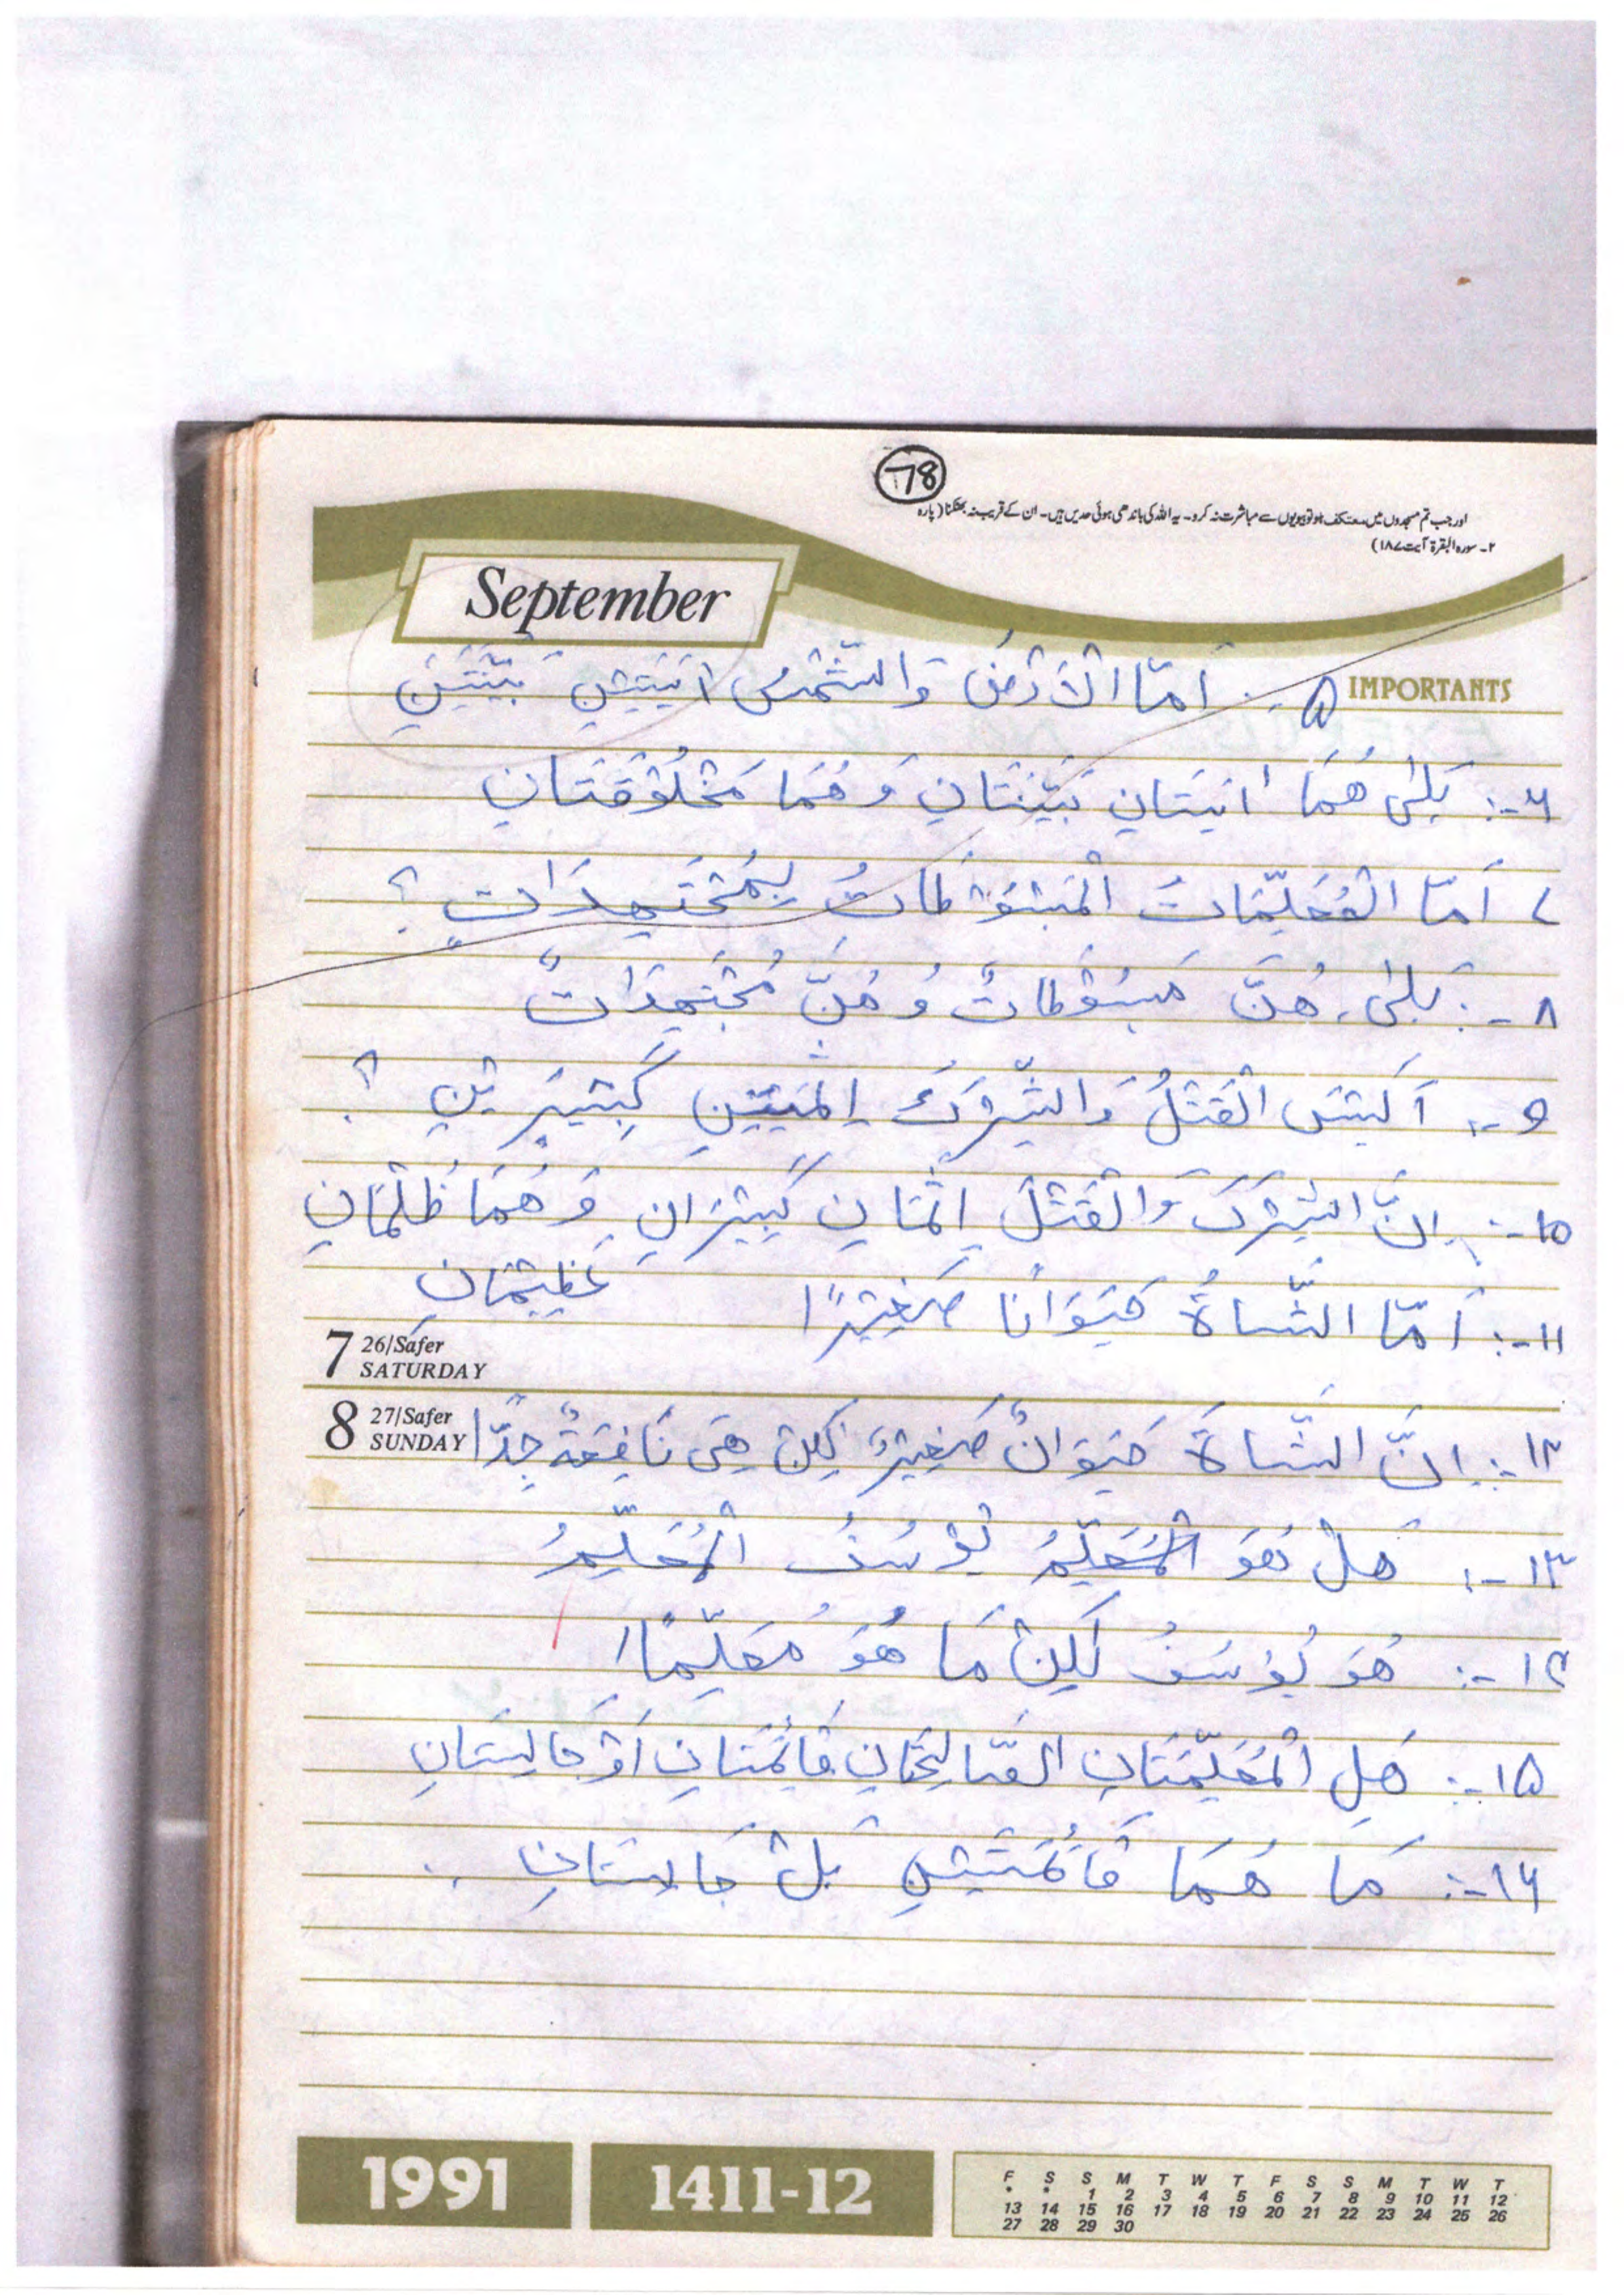 78
اور جب تم مسجدوں میں معتکف ہو تو بیویوں سے مباشرت نہ کرو۔ یہ اللہ کی باندھی ہوئی حدیں ہیں۔ ان کے قریب نہ بھٹکنا (پارہ
۲۔ سورہ البقرۃ آیت ۱۸۷)
September
IMPORTANTS
۵ -: اَمَا الْاَرْضُ وَالشَّمْسُ اٰيَتَيْنِ بَيِّنَتَيْنِ
۶ -: بَلٰى هُمَا اٰيَتَانِ بَيِّنَتَانِ وَهُمَا مَخْلُوْقَتَانِ
۷ اَمَا الْمُعَلِّمَاتُ الْمَبْسُوْطَاتُ بِمُجْتَهِدَاتٍ ؟
۸ -: بَلٰى، هُنَّ مَبْسُوْطَاتٌ وَهُنَّ مُجْتَهِدَاتٌ
۹ -: اَلَيْسَ الْقَتْلُ وَالشِّرْكُ اِثْمَيْنِ كَبِيْرَيْنِ ؟
۱۰ -: اِنَّ الشِّرْكَ وَالْقَتْلَ اِثْمَانِ كَبِيْرَانِ وَهُمَا ظُلْمَانِ
عَظِيْمَانِ
۱۱ -: اَمَا الشَّاةُ حَيَوَانًا صَغِيْرًا
7 26/Safer
SATURDAY
8 27/Safer
SUNDAY
۱۲ -: اِنَّ الشَّاةَ حَيَوَانٌ صَغِيْرٌ لٰكِنْ هِىَ نَافِعَةٌ جِدًّا
۱۳ -: هَلْ هُوَ الْمُعَلِّمُ يُوْسُفُ الْمُعَلِّمُ
۱۴ -: هُوَ يُوْسُفُ لٰكِنْ مَا هُوَ مُعَلِّمًا
۱۵ -: هَلِ الْمُعَلِّمَتَانِ الصَّالِحَتَانِ قَائِمَتَانِ اَوْ جَالِسَتَانِ
۱۶ -: مَا هُمَا قَائِمَتَيْنِ بَلْ جَالِسَتَانِ
1991
1411-12
F S S M T W T F S S M T W T
* * 1 2 3 4 5 6 7 8 9 10 11 12
13 14 15 16 17 18 19 20 21 22 23 24 25 26
27 28 29 30